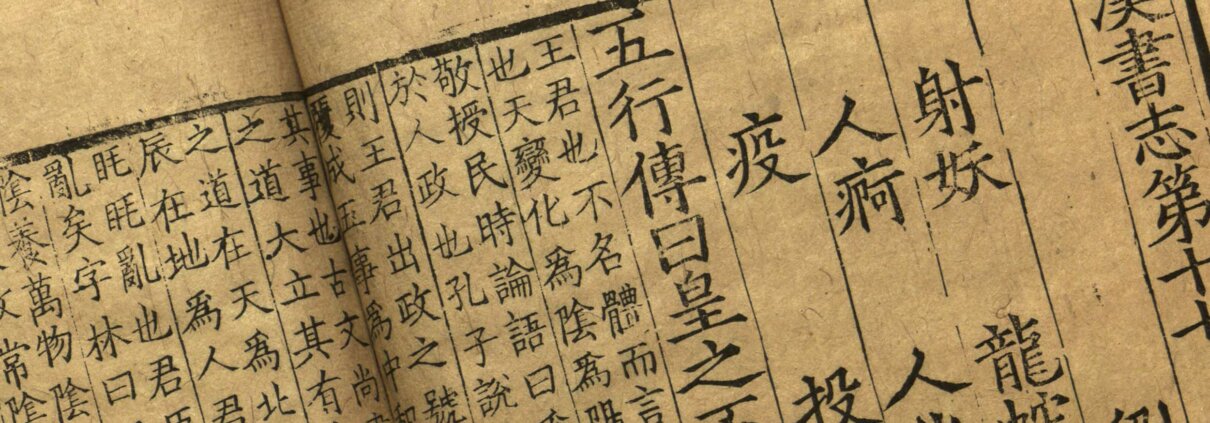 漢書志第十
射妖 龍
人痾 人
疫 投
五行傳曰皇之不
王君也不名體而言
也天變化爲陰爲
敬授民時論語曰
於人政也孔子說
則王君出政之號
覆成五事爲中
其事也古文尚
之道大立其有
之道在天爲北
辰在地爲人君
眊眊亂也君臣
亂矣字林曰
陰養萬物陰
常陰